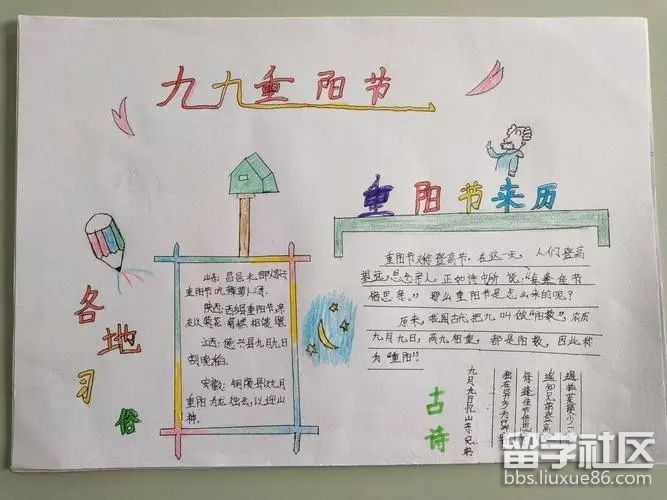 九九重阳节
各地习俗
山东：昌邑北部人家于
重阳节吃辣萝卜汤
陕西：西乡县重阳节，亲
友以菊花、菊糕相馈
江西：德兴县九月九日
割晚稻
安徽：铜陵县以九月
重阳为龙烛会，以迎山
神。
重阳节来历
重阳节又称登高节，在这一天，人们登高
望远，思念亲人，正如诗中所说："每逢佳节
倍思亲。"那么重阳节是怎么来的呢？
原来，我国古代把九叫做"阳数"，农历
九月九日，两九相重，都是阳数，因此称
为"重阳"
古诗
九月九日忆山东兄弟
独在异乡为异
每逢佳节倍思
遥知兄弟登高
遍插茱萸少一
留学社区
bbs.liuxue86.com